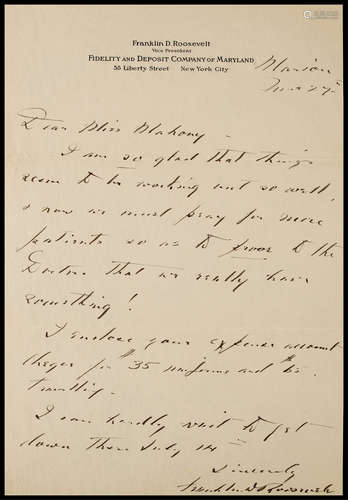 Franklin D. Roosevelt
Vice President
Fidelity and Deposit Company of Maryland
55 Liberty Street New York City
Marion
June 27
Dear Miss Mahony -
I am so glad that things
seem to be working out so well,
& now we must pray for more
patients so as to prove to the
Doctors that we really have
something!
I enclose your expense account
cheques for $35 uniforms and $65
travelling.
I can hardly wait to get
down there July 14
Sincerely
Franklin D Roosevelt